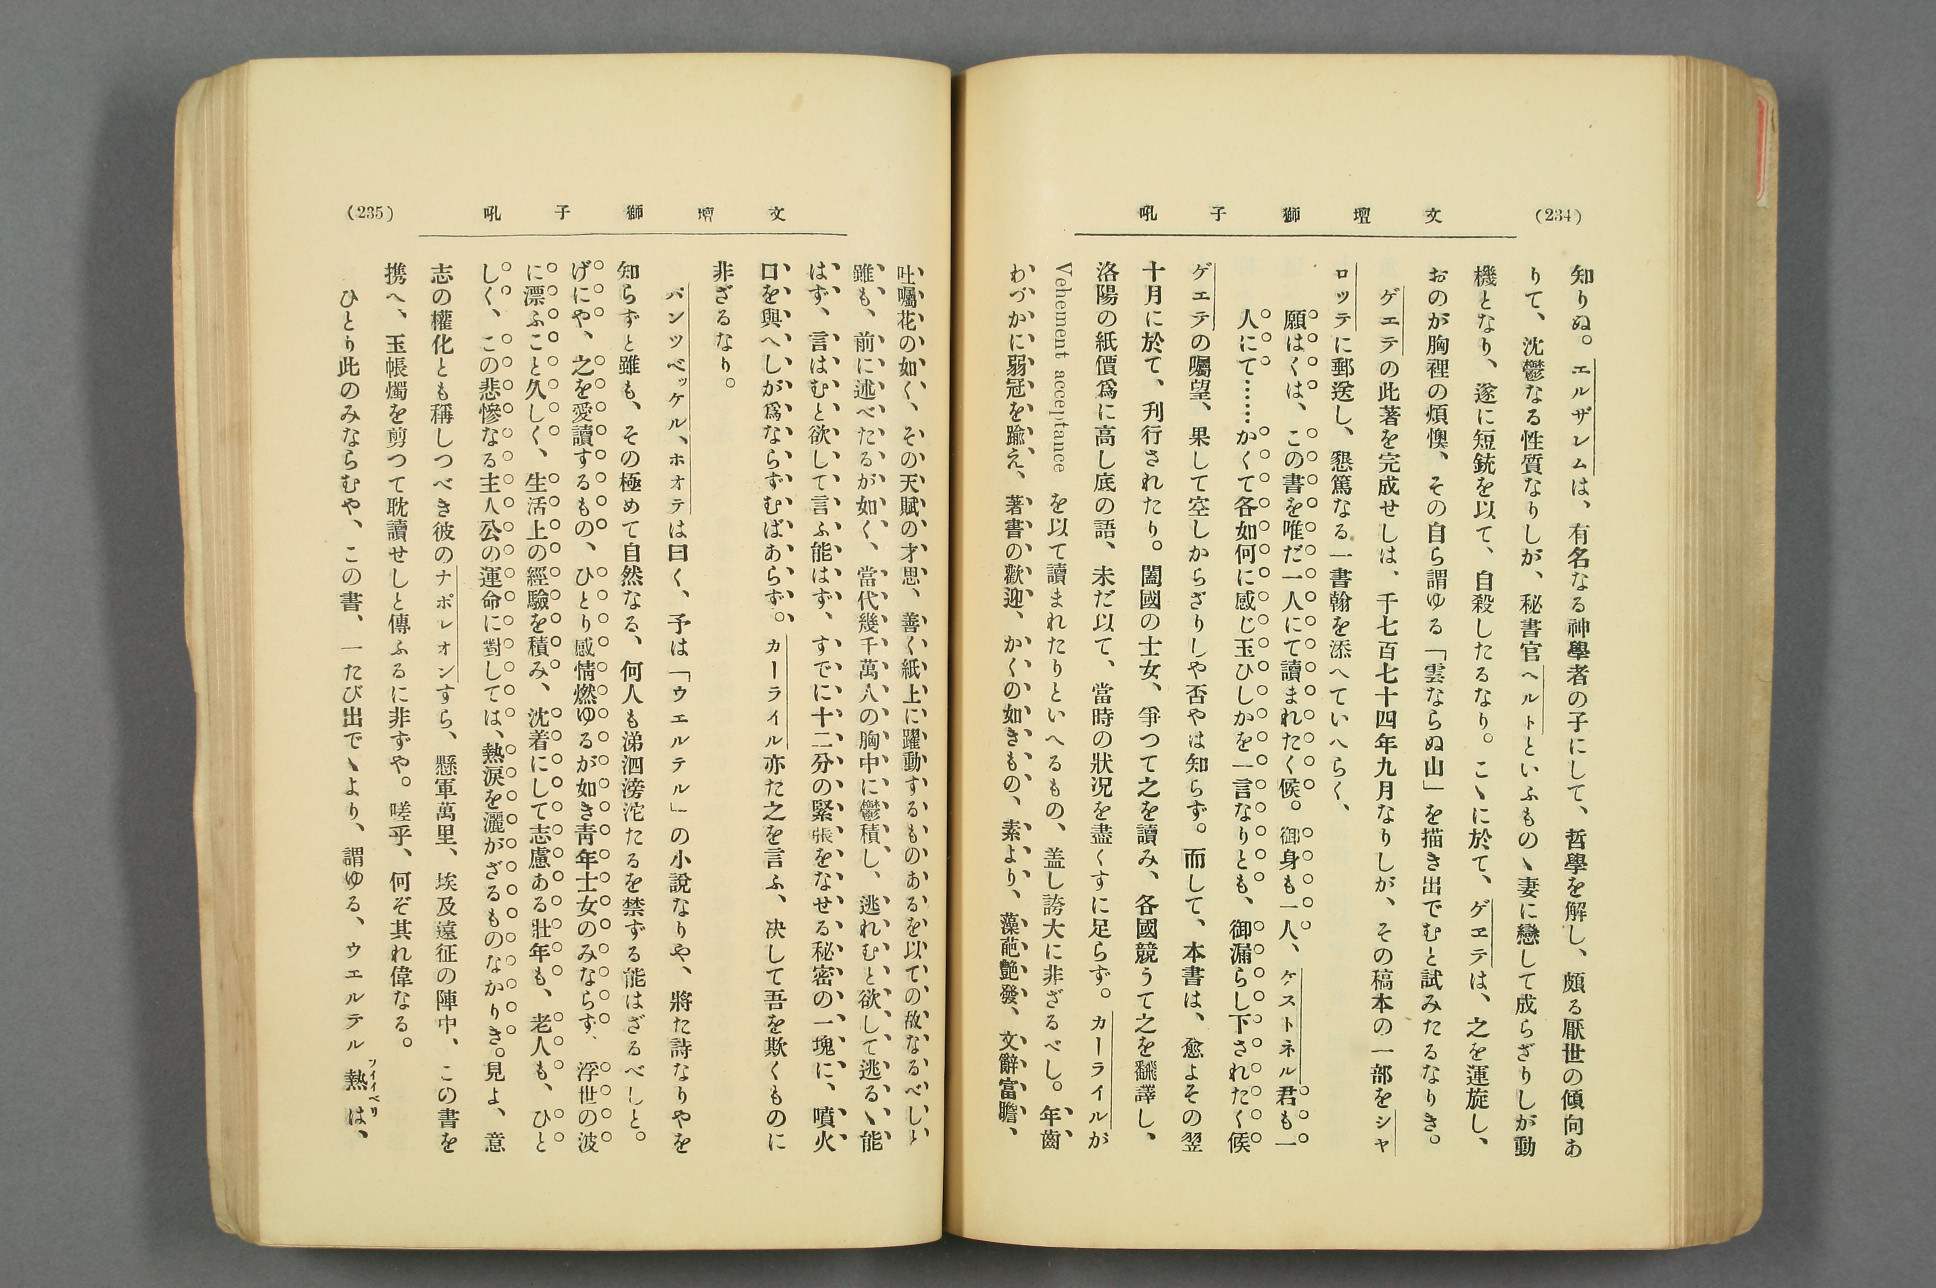 (234)
文壇獅子吼
知りぬ。エルザレムは、有名なる神學者の子にして、哲學を解し、頗る厭世の傾向あ
りて、沈鬱なる性質なりしが、秘書官ヘルトといふものヽ妻に戀して成らざりしが動
機となり、遂に短銃を以て、自殺したるなり。こヽに於て、ゲエテは、之を運旋し、
おのが胸裡の煩懊、その自ら謂ゆる「雲ならぬ山」を描き出でむと試みたるなりき。
ゲエテの此著を完成せしは、千七百七十四年九月なりしが、その稿本の一部をシヤ
ロツテに郵送し、懇篤なる一書翰を添へていへらく、
願はくは、この書を唯だ一人にて讀まれたく候。御身も一人、ケストネル君も一
人にて……かくて各如何に感じ玉ひしかを一言なりとも、御漏らし下されたく候
ゲエテの囑望、果して空しからざりしや否やは知らず。而して、本書は、愈よその翌
十月に於て、刊行されたり。闔國の士女、爭つて之を讀み、各國競うて之を飜譯し、
洛陽の紙價爲に高し底の語、未だ以て、當時の狀况を盡くすに足らず。カーライルが
Vehement acceptance を以て讀まれたりといへるもの、盖し誇大に非ざるべし。年齒
わづかに弱冠を踰え、著書の歡迎、かくの如きもの、素より、藻葩艶發、文辭富贍、
(235)
文壇獅子吼
吐囑花の如く、その天賦の才思、善く紙上に躍動するものあるを以ての故なるべしと
雖も、前に述べたるが如く、當代幾千萬人の胸中に鬱積し、逃れむと欲して逃るヽ能
はず、言はむと欲して言ふ能はず、すでに十二分の緊張をなせる秘密の一塊に、噴火
口を與へしが爲ならずむばあらず。カーライル亦た之を言ふ、决して吾を欺くものに
非ざるなり。
パンツベッケル、ホオテは曰く、予は「ウエルテル」の小說なりや、將た詩なりやを
知らずと雖も、その極めて自然なる、何人も涕泗滂沱たるを禁ずる能はざるべしと。
げにや、之を愛讀するもの、ひとり感情燃ゆるが如き靑年士女のみならず、浮世の波
に漂ふこと久しく、生活上の經驗を積み、沈着にして志慮ある壯年も、老人も、ひと
しく、この悲慘なる主人公の運命に對しては、熱淚を灑がざるものなかりき。見よ、意
志の權化とも稱しつべき彼のナポレオンすら、懸軍萬里、埃及遠征の陣中、この書を
携へ、玉帳燭を剪つて耽讀せしと傳ふるに非ずや。嗟乎、何ぞ其れ偉なる。
ひとり此のみならむや、この書、一たび出でヽより、謂ゆる、ウエルテル熱は、